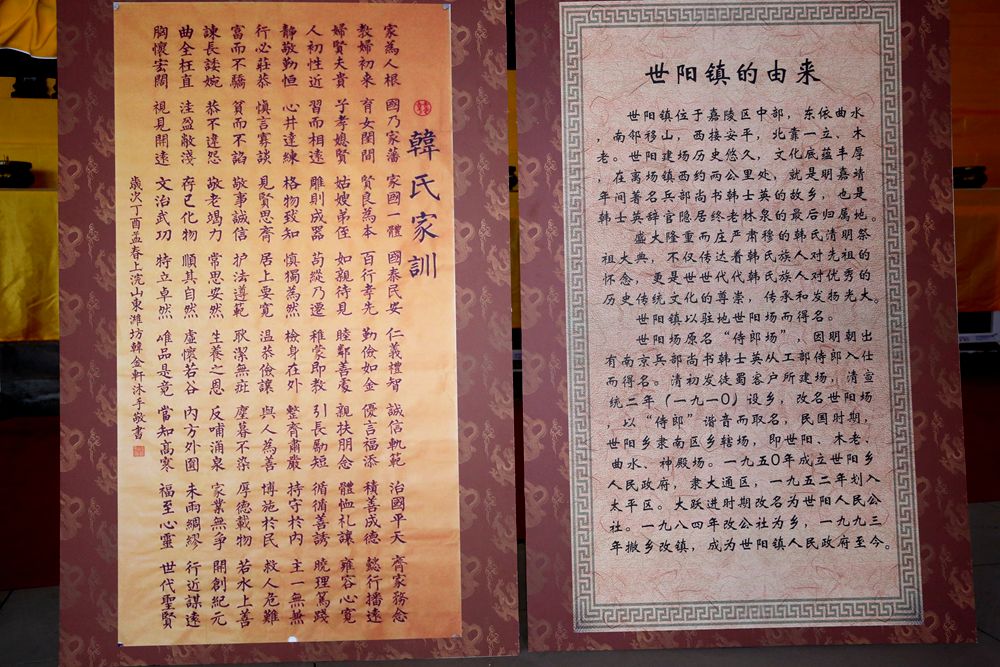 韓氏家訓
家為人根 國乃家藩 家國一體 國泰民安 仁義禮智 誠信軌範 治國平天 齊家務念
教婦初來 育女閨間 賢良為本 百行孝先 勤儉如金 優言福添 積善成德 懿行播遠
婦賢夫貴 子孝媳賢 姑嫂弟侄 如親待見 睦鄰善處 親扶朋念 體恤礼讓 雍容心寬
人初性近 習而相遠 雕則成器 苟縱乃遷 稚蒙即教 引長勵短 循循善誘 曉理篤踐
靜敬勤恒 心井達練 格物致知 慎獨為然 檢身在外 整齊肅嚴 持守於內 主一無
行必莊恭 慎言寡談 見賢思齊 居上要寬 溫恭儉讓 與人為善 博施於民 救人危難
富而不驕 貧而不諂 敬事誠信 護法遵範 耿潔無 塵暮不染 厚德載物 若水上善
諫長諉婉 恭不違怨 敬老竭力 常思安然 生養之恩 反哺涌泉 家業無爭 開創紀元
曲全枉直 洼盈敝淺 存已化物 順其自然 虛懷若谷 內方外圓 未雨綢繆 行近謀遠
胸懷宏闊 視見開遠 文治武功 特立卓然 唯品是竟 當知高寒 福至心靈 世代聖賢
歲次丁酉孟春上浣山東濰坊韓金軒沐手敬書
世阳镇的由来
世阳镇位于嘉陵区中部，东依曲水
南邻移山，西接安平，北靠一立、木
老。世阳建场历史悠久，文化底蕴丰厚
，在离场镇西约两公里处，就是明嘉靖
年间著名兵部尚书韩士英的故乡，也是
韩士英辞官隐居终老林泉的最后归属地。
盛大隆重而庄严肃穆的韩氏清明祭
祖大典，不仅传达着韩氏族人对先祖的
怀念，更是世世代代韩氏族人对优秀的
历史传统文化的尊崇，传承和发扬光大。
世阳镇以驻地世阳场而得名。
世阳场原名“侍郎场”，因明朝出
有南京兵部尚书韩士英从工部侍郎入仕
而得名。清初发徒蜀客户所建场，清宣
统二年（一九一〇）设乡，改名世阳场
，以“侍郎”谐音而取名，民国时期，
世阳乡隶南区乡辖场，即世阳、木老、
曲水、神殿场。一九五〇年成立世阳乡
人民政府，隶大通区，一九五二年划入
太平区。大跃进时期改名为世阳人民公
社。一九八四年改公社为乡，一九九三
年撤乡改镇，成为世阳镇人民政府至今。